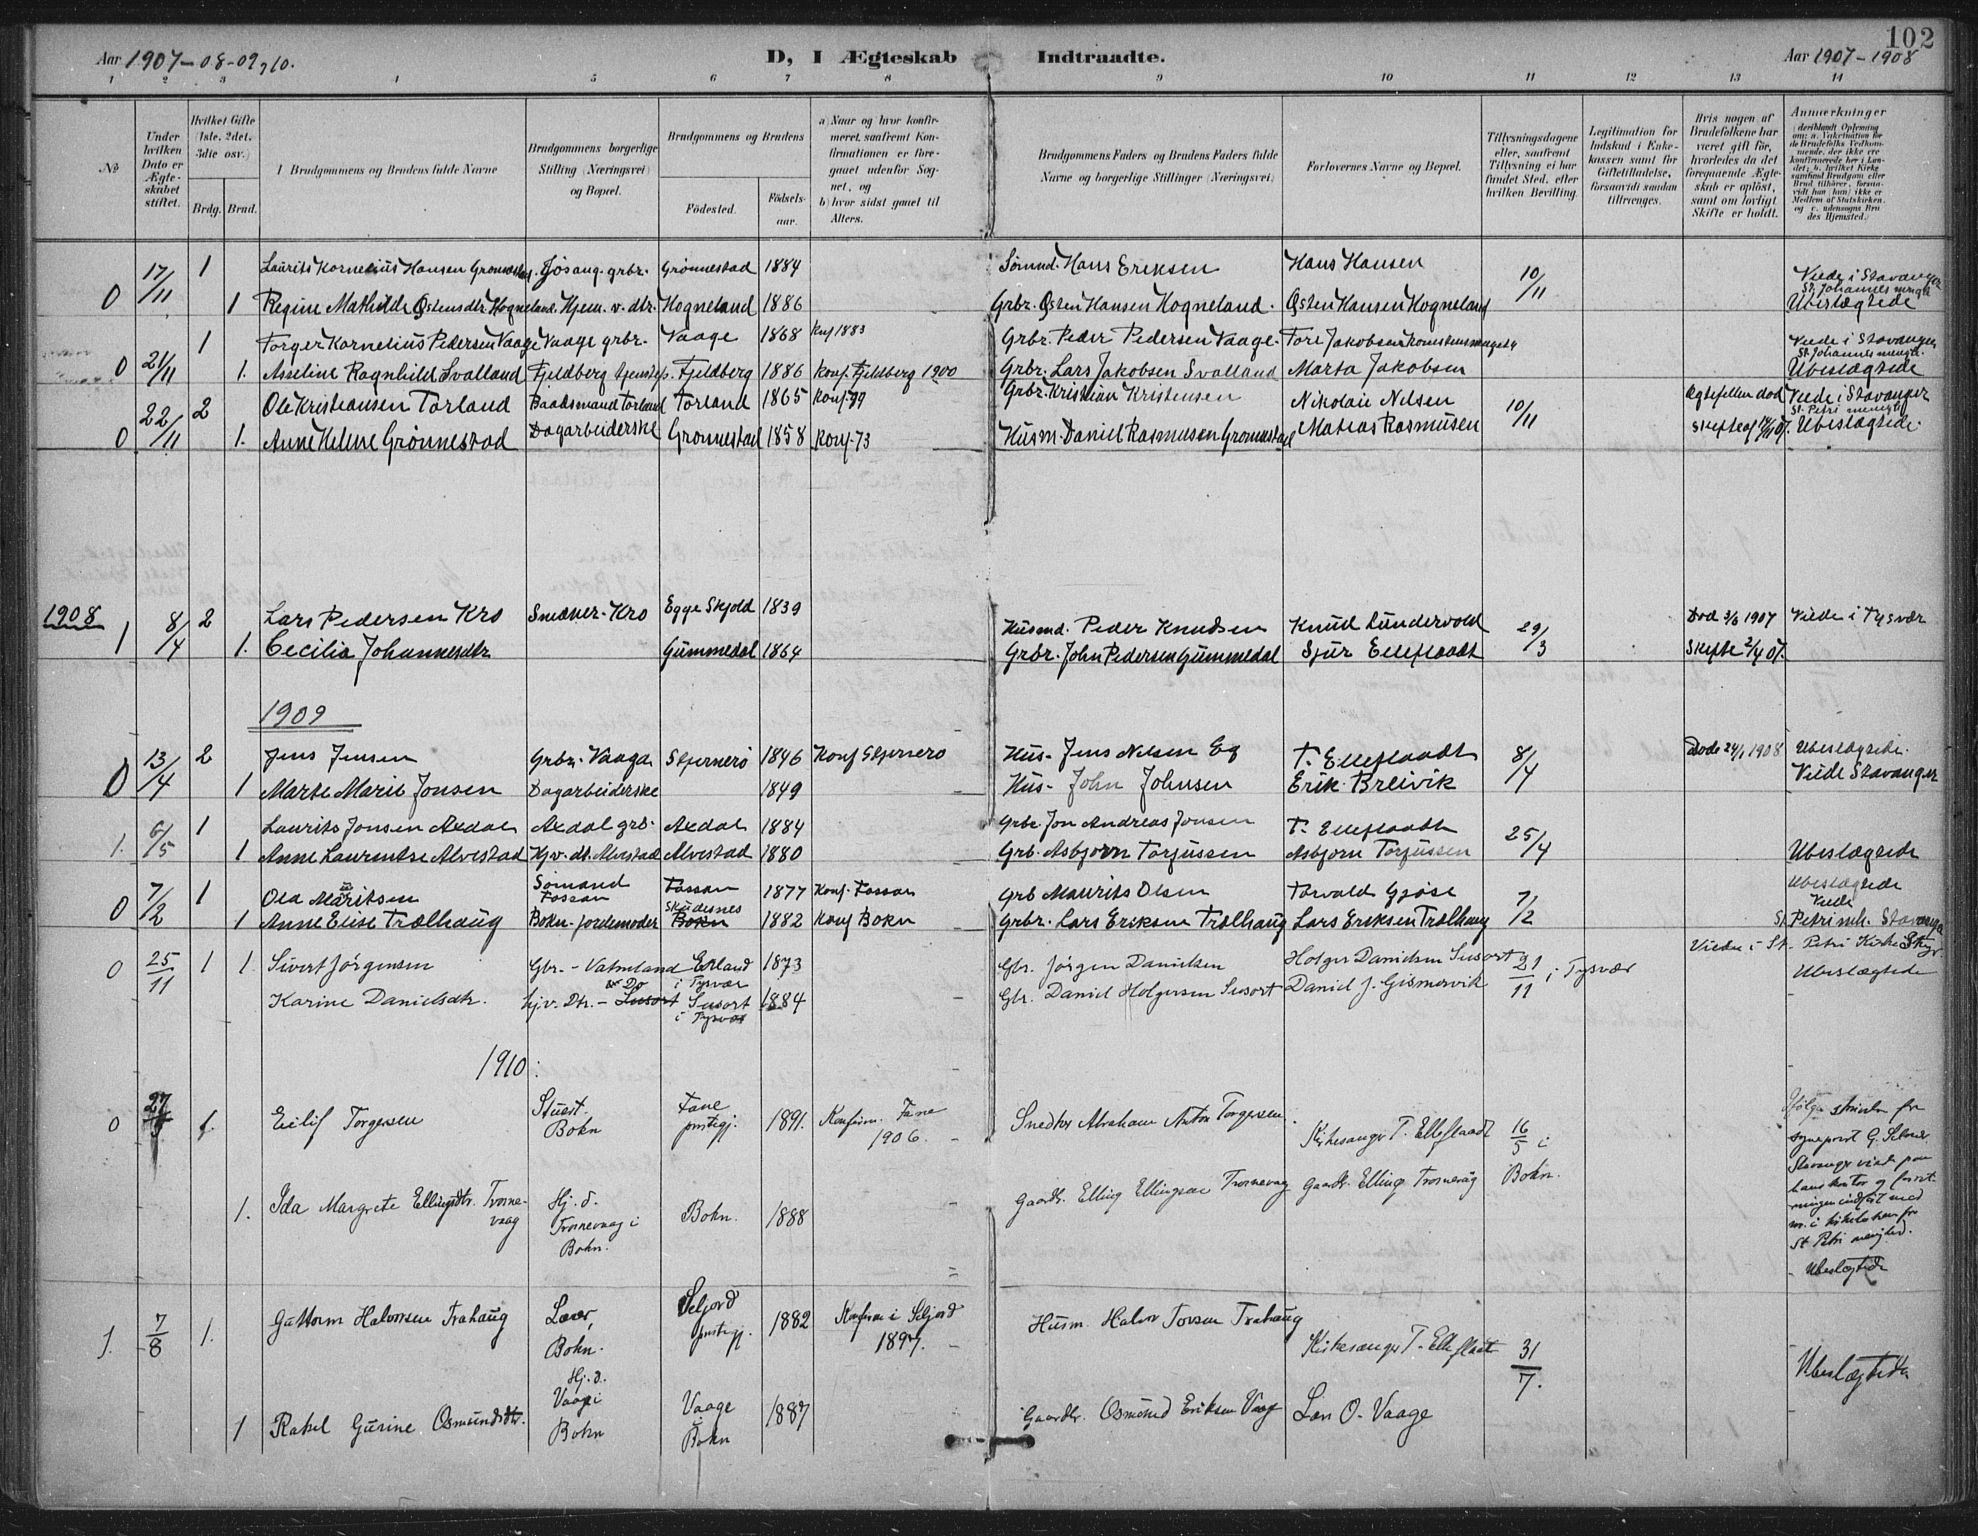 102
Aar 1907-08-09, 10.
D, I Ægteskab Indtraadte.
Aar 1907-1908
1 2 3 4 5 6 7 8 9 10 11 12 13 14
No
Under hvilken Dato er Ægteskabet stiftet.
Hvilket Gifte (1ste, 2det, 3die osv.)
Brdg. Brud.
Brudgommens og Brudens fulde Navne
Brudgommens borgerlige Stilling (Næringsvei) og Bopæl.
Brudgommens og Brudens
Fødested.
Fødselsaar.
a) Naar og hvor konfirmeret, saafremt Konfirmationen er foregaaet udenfor Sognet, og
b) hvor sidst gaaet til Alters.
Brudgommens Faders og Brudens Faders fulde Navne og borgerlige Stillinger (Næringsvei)
Forlovernes Navne og Bopæl.
Tillysningsdagene eller, saafremt Tillysning ei har fundet Sted, efter hvilken Bevilling.
Legitimation for Indskud i Enkekassen samt for Giftetilladelse, forsaavidt saadan tiltrænges.
Hvis nogen af Brudefolkene har været gift før, hvorledes da det foregaaende Ægteskab er opløst, samt om lovligt Skifte er holdt.
Anmærkninger
17/11 1 Laurits Kornelius Hansen Grønnestad. Jøsang. grbr. Grønnestad 1884 Sømnd. Hans Eriksen Hans Hansen 10/11 Viede i Stavanger St. Johannes mengh.
0 1 Regine Mathilde Østensdtr. Hogneland. Hjem. v. dtr. Hogneland 1886 Grbr. Østen Hansen Hogneland. Østen Hansen Hogneland Ubeslægtede
21/11 1 Torger Kornelius Pedersen Vaage Vaage grbr. Vaage 1868 Konf 1883 Grbr. Peder Pedersen Vaage. Tore Jakobsen Viede i Stavanger St. Johannes mengh.
0 1. Asseline Ragnhild Svalland Fjeldberg Fjeldberg 1886 Konf. Fjeldberg 1900 Grbr. Lars Jakobsen Svalland Marta Jakobsen Ubeslægtede
22/11 2 Ole Kristiansen Torland Baadsmand Torland Torland 1865 Konf. Grbr. Kristian Kristensen Nikolai Nilsen 10/11 Ægtefellen død Viede i Stavanger St. Petri mengh
0 1. Anne Helene Grønnestad Dagarbeiderske Grønnestad 1858 Konf. 73 Husm. Daniel Rasmusen Grønnestad Matias Rasmusen Ubeslægtede.
1908
1 8/4 2 Lars Pedersen Kro Snedker. Kro Egge Skjold 1839 Husmd. Peder Knudsen Knud Lundervold 29/3 Død 3/6 1907 Viede i Tysvær
1. Cecilia Johannesdtr Gummedal 1864 Grbr. John Pedersen Gummedal Sjur Elleflaadt Skifte 2/4 07.
1909
0 13/4 2 Jens Jensen Grbr. Vaaga Stjernerø 1846 Konf Stjernerø Hus- Jens Nilsen Eg T. Elleflaadt 8/4 Døde 24/1 1908 Ubeslægtede.
1 Marte Marie Jonsen Dagarbeiderske 1849 Hus- John Johnsen Erik Breivik Viede Stavanger
1. 6/5 1 Laurits Jonsen Axdal Axdal grb. Axdal 1884 Grbr Jon Andreas Jonsen T. Elleflaadt 25/4
1 Anne Laurentse Alvestad Hj. v. dt. Alvestad Alvestad 1880 Grb. Asbjørn Torjussen Asbjørn Torjussen Ubeslægtede
0 7/2 1 Ola Mauritsen Sømand Fossan Fossan 1877 Konf. Fossan Grb Maurits Olsen Torvald Gjøse 7/2 Ubeslægtede Viede
1 Anne Elise Trælhaug Bokn. jordemoder Skudesnes Bokn 1882 Konf Bokn Grbr. Lars Eriksen Trælhaug Lars Eriksen Trælhaug St. Petri mh. Stavanger
0 25/11 1 1. Sivert Jørgensen Gbr. - Vatnaland Erland i Tysvær 1873 Gbr. Jørgen Danielsen Holger Danielsen Susort 21/11 i Tysvær Viede i St. Petri Kirke
Karine Danielsdtr. hj. v. Dtr. - Susort Do Susort i Tysvær 1884 Gbr. Daniel Holgersen Susort Daniel J. Gismervik Ubeslægtede
1910.
0 27/5 1. Eilif Torgersen Stuert. Bokn Fane prstgj. 1891. Konfirm. Fane 1906. Snedker Abraham Anton Torgersen Kirkesanger T. Elleflaadt 16/5 i Bokn.
1. Ida Margrete Ellingsdtr. Trosnevaag Hj. d. Trosnevaag i Bokn. Bokn. 1888 Gaardbr. Elling Ellingsen Trosnevag Gaardbr. Elling Trosnevåg
Ifølge skrivelse fra sogneprest G. Stavanger viede paa hans kontor og forretningen indført med nr. i kirkeboken for St Petri menighed.
Ubeslægtede
1. 7/8 1. Guttorm Halvorsen Trahaug Lærer, Bokn. Seljord prstegj. 1882 Konfirm i Seljord 1897. Husm. Halvor Torsen Trahaug Kirkesanger T. Elleflaat 31/7. Ubeslægtede
1 Rakel Gurine Osmundsdtr. Hj. d. Vaage i Bokn Vaage Bokn 1887 Gaardbr. Osmund Eriksen Vaag Lars O. Vaage